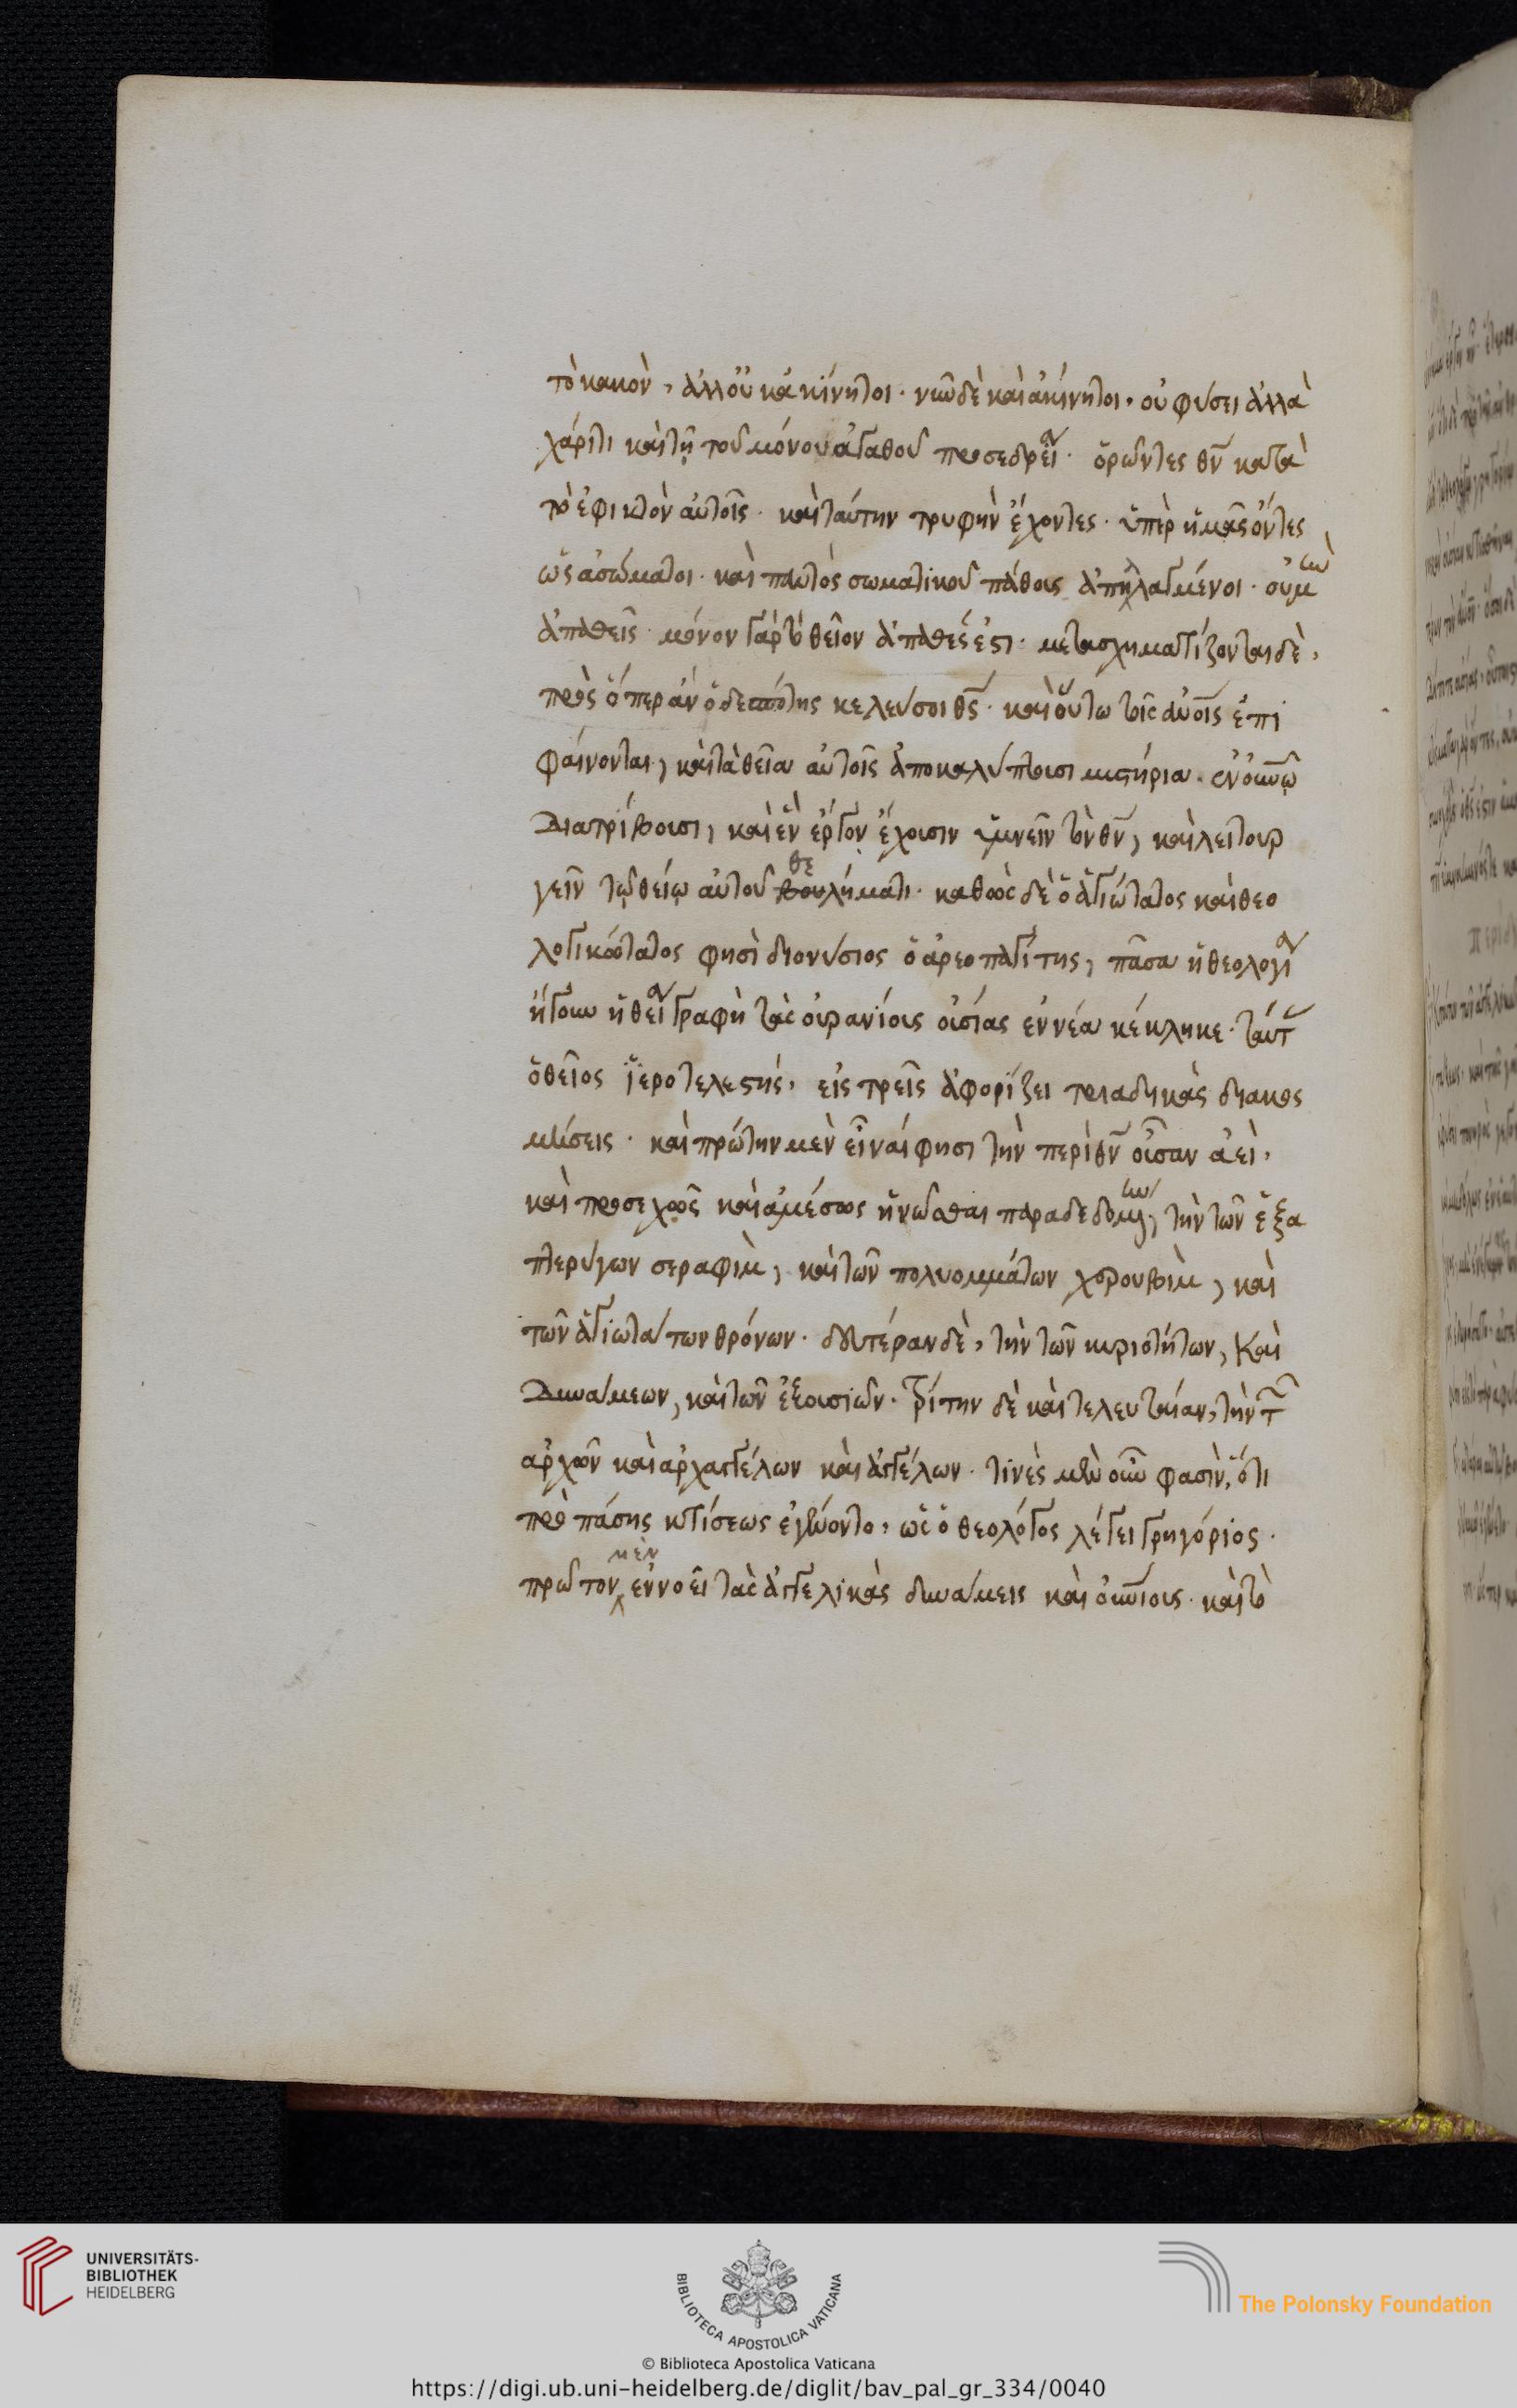 τὸ κακὸν, ἀλλ' οὐκ ἀκίνητοι· νῦν δὲ καὶ ἀκίνητοι, οὐ φύσει ἀλλὰ
χάριτι καὶ τῇ τοῦ μόνου ἀγαθοῦ προσεδρεία· ὁρῶντες θν̄ κατὰ
τὸ ἐφικτὸν αὐτοῖς· καὶ ταύτην τρυφὴν ἔχοντες· ὑπὲρ ἡμᾶς ὄντες
ὡς ἀσώματοι· καὶ παντὸς σωματικοῦ πάθους ἀπηλλαγμένοι· οὐ μὴν
ἀπαθεῖς· μόνον γὰρ τὸ θεῖον ἀπαθές ἐστι· μετασχηματίζονται δὲ,
πρὸς ὅπερ ἂν ὁ δεσπότης κελεύσοι θς̄· καὶ οὕτω τοῖς αὐοῖς ἐπι
φαίνονται, καὶ τὰ θεῖα αὐτοῖς ἀποκαλύπτουσι μυστήρια· ἐν οὐνῶ
διατρίβουσι, καὶ ἓν ἔργον ἔχουσιν ὑμνεῖν τὸν θν̄, καὶ λειτουρ
γεῖν τῷ θείῳ αὐτοῦ θε βουλήματι· καθὼς δὲ ὁ ἁγιώτατος καὶ θεο
λογικώτατος φησὶ διονύσιος ὁ ἀρεοπαγίτης, πᾶσα ἡ θεολογία
ἤγουν ἡ θεία γραφὴ τὰς οὐρανίους οὐσίας ἐννέα κέκληκε· ταύτ
ὁ θεῖος ἱεροτελεστής, εἰς τρεῖς ἀφορίζει τριαδικὰς διακος
μήσεις· καὶ πρώτην μὲν εἶναί φησι τὴν περὶ θν̄ οὖσαν ἀεὶ,
καὶ προσεχῶς καὶ ἀμέσως ἡνῶσθαι παραδεδομένην, τὴν τῶν ἑξα
πτερύγων σεραφὶμ, καὶ τῶν πολυομμάτων χερουβὶμ, καὶ
τῶν ἁγιωτάτων θρόνων· δευτέραν δὲ, τὴν τῶν κυριοτήτων, καὶ
δυνάμεων, καὶ τῶν ἐξουσιῶν· τρίτην δὲ καὶ τελευταίαν, τὴν τ
ἀρχῶν καὶ ἀρχαγγέλων καὶ ἀγγέλων· τινὲς μὲν οὖν φασὶν, ὅτι
πρὸ πάσης κτίσεως ἐγένοντο, ὡς ὁ θεολόγος λέγει γρηγόριος·
πρῶτον μὲν ἐννοεῖ τὰς ἀγγελικὰς δυνάμεις καὶ οὐνίους· καὶ τὸ
UNIVERSITÄTS-
BIBLIOTHEK
HEIDELBERG
BIBLIOTECA APOSTOLICA VATICANA
The Polonsky Foundation
© Biblioteca Apostolica Vaticana
https://digi.ub.uni-heidelberg.de/diglit/bav_pal_gr_334/0040